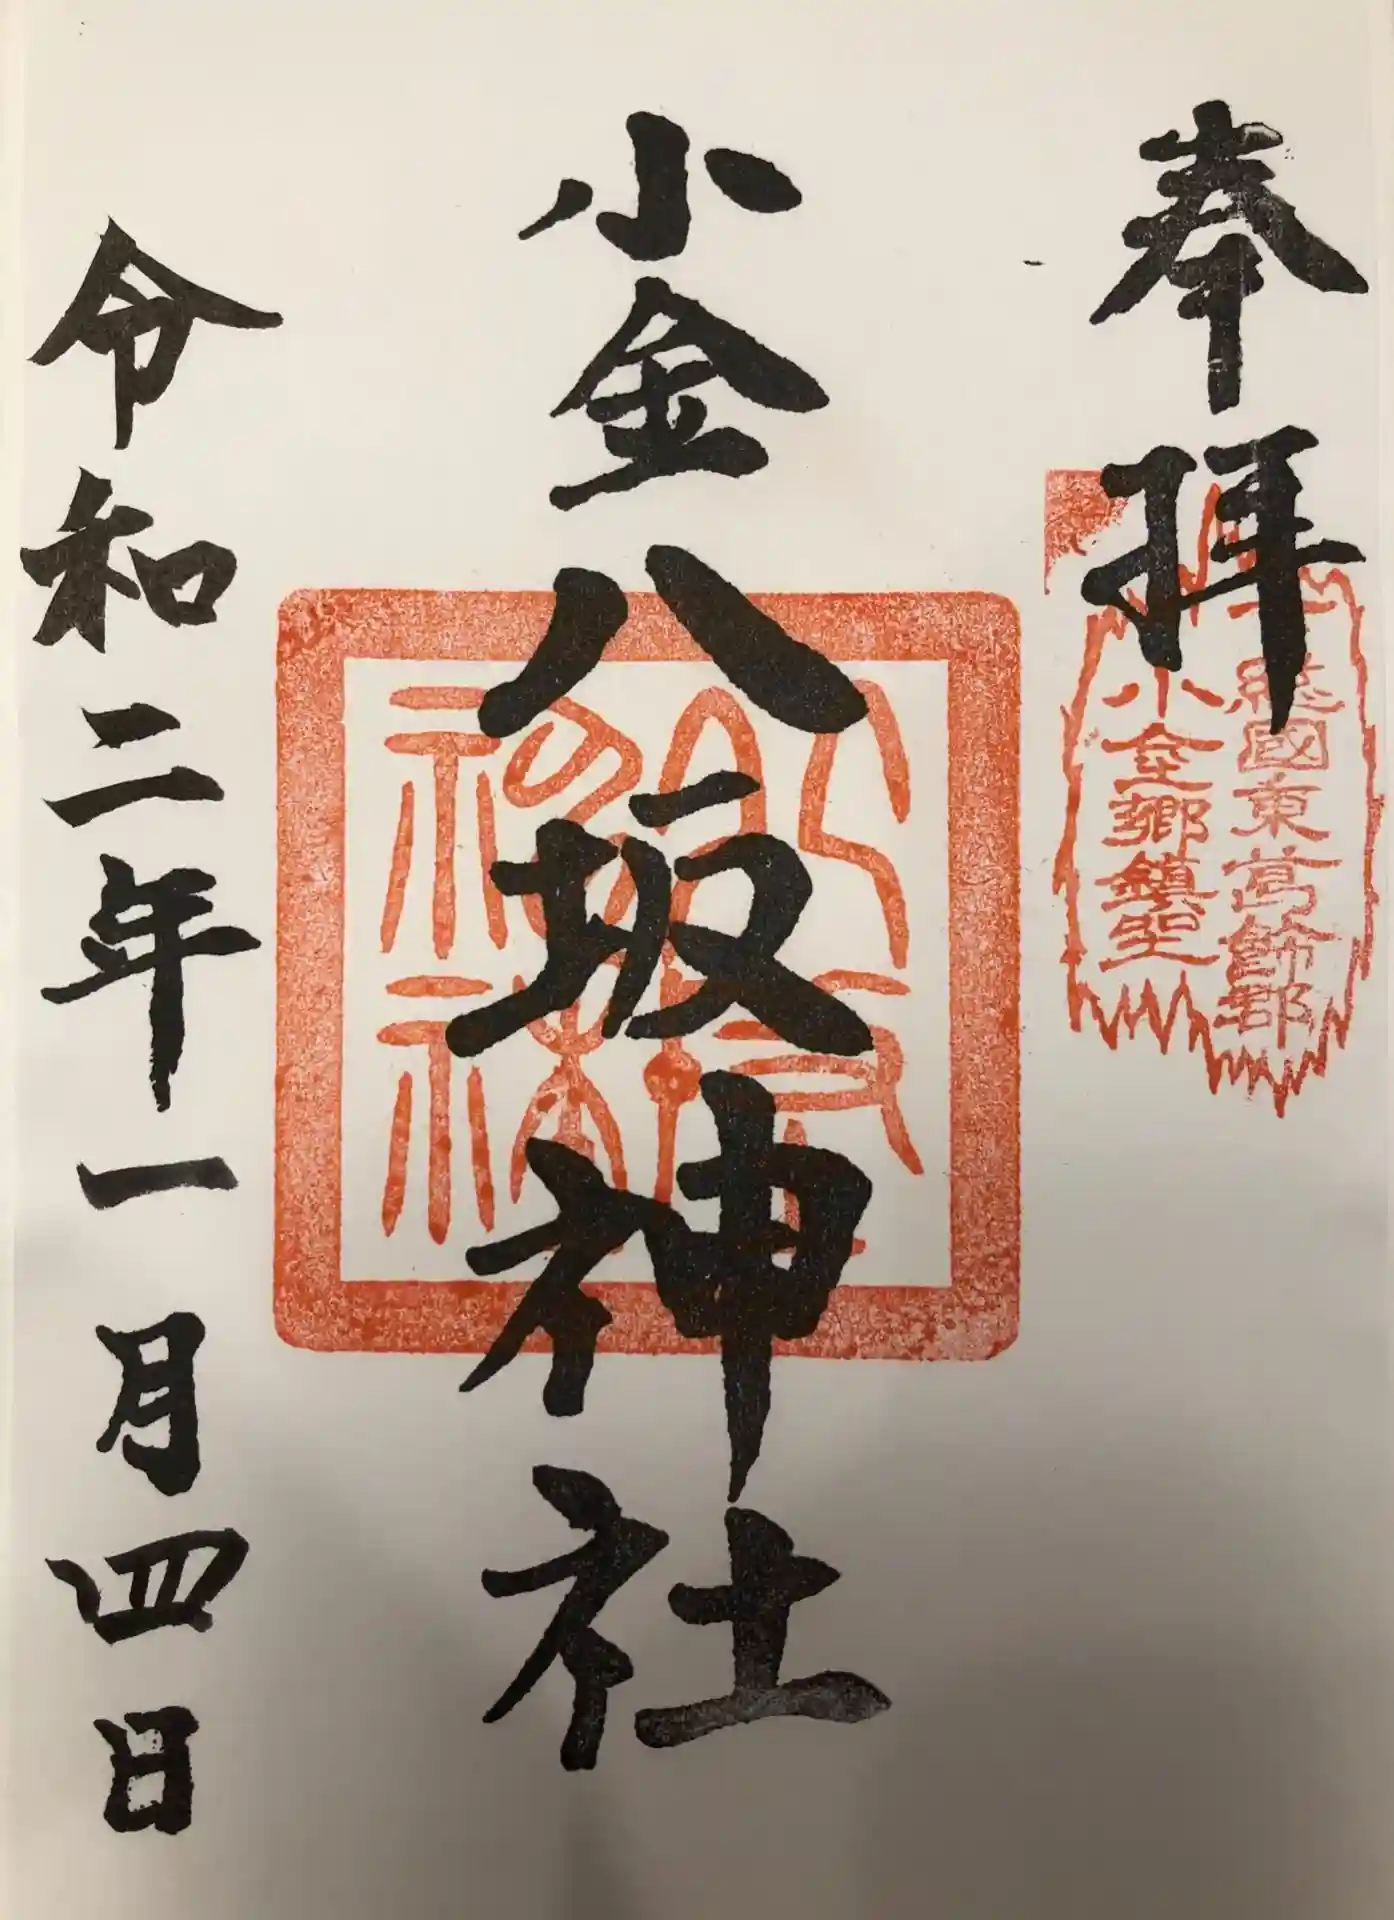 奉拝
總國東葛飾郡
小金郷鎮聖
小金八坂神社
令和二年一月四日